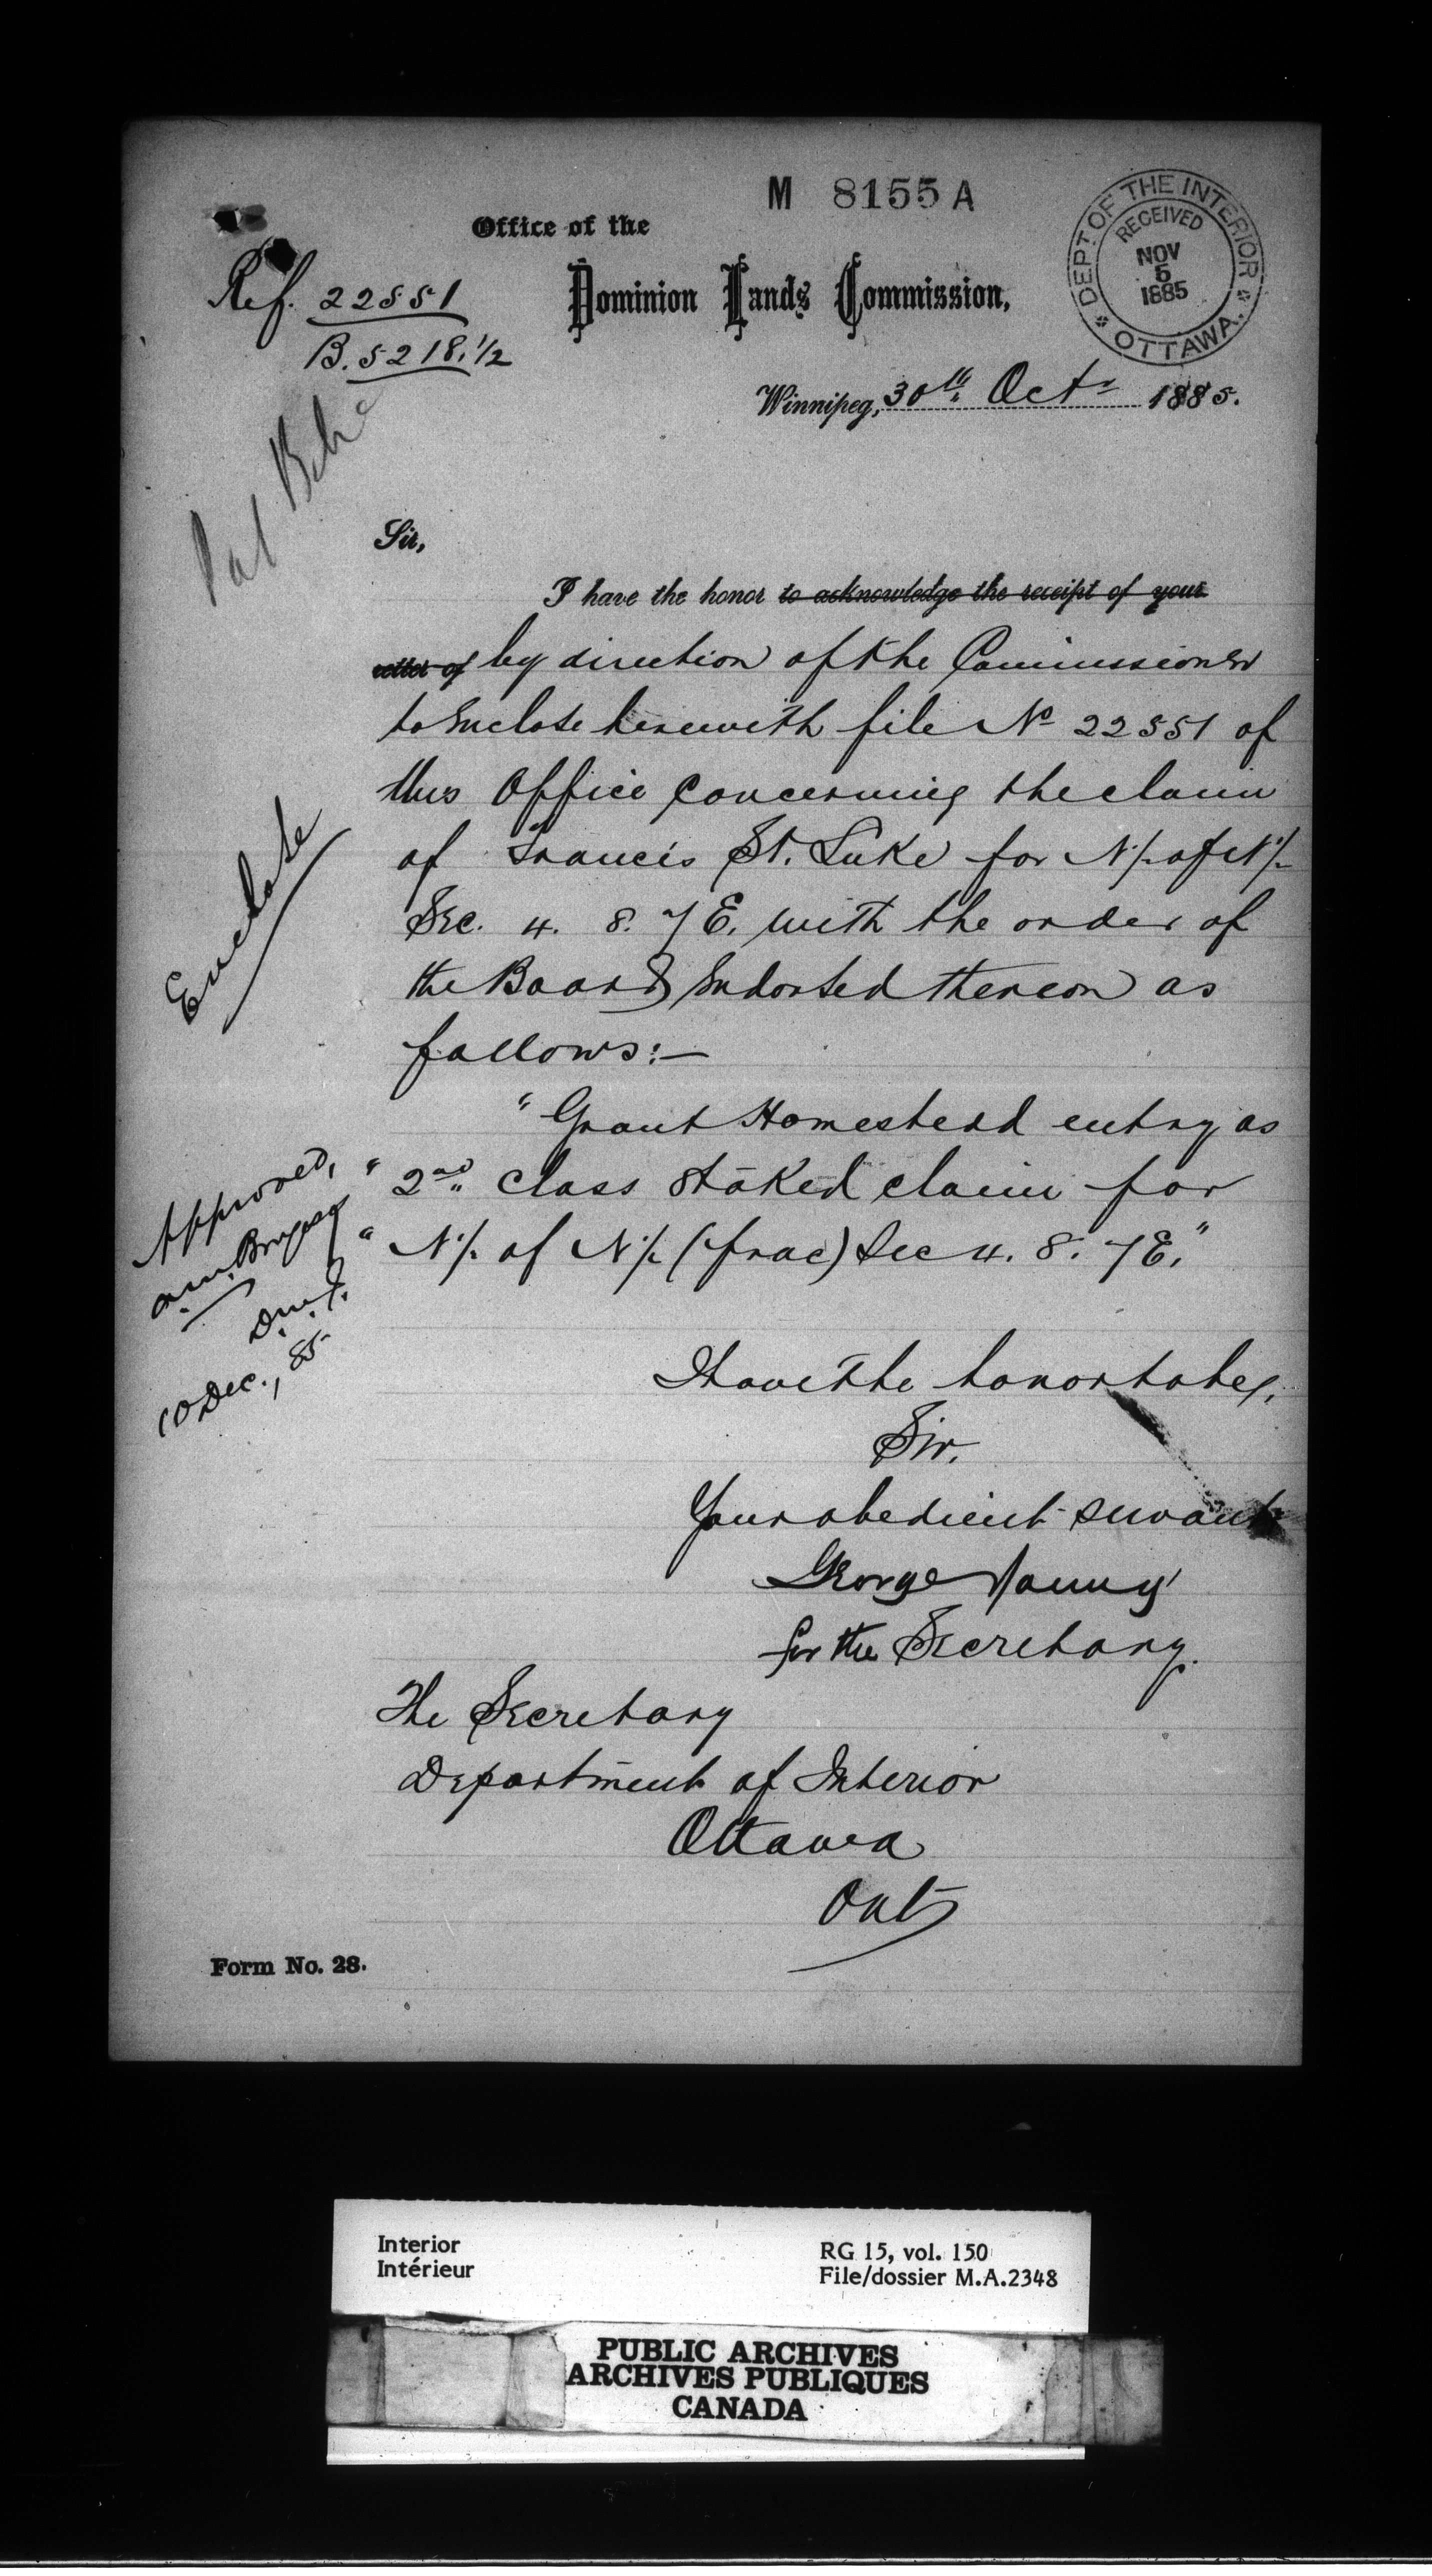 M 8155 A
Office of the
Dominion Lands Commission,
DEPT. OF THE INTERIOR
RECEIVED
NOV
5
1885
OTTAWA.
Ref. 22551
B. 5218. 1/2
Winnipeg, 30th Oct. 1885.
Sir,
I have the honor to acknowledge the receipt of your
letter of by direction of the Commissioner
to Enclose herewith file No 22551 of
this Office Concerning the claim
of Francis St. Luke for N 1/2 of N 1/2
Sec. 4. 8. 7 E. with the order of
the Board Endorsed thereon as
follows:—
Enclose
"Grant Homestead entry as
" 2nd class staked claim for
" N 1/2 of N 1/2 (frac) Sec 4. 8. 7 E."
Approved,
A.M. Burgess
D.M.I.
10 Dec., 85
I have the honor to be,
Sir,
Your obedient servant
George Young
for the Secretary.
The Secretary
Department of Interior
Ottawa
Ont
Form No. 28.
Interior
Intérieur
RG 15, vol. 150
File/dossier M.A.2348
PUBLIC ARCHIVES
ARCHIVES PUBLIQUES
CANADA